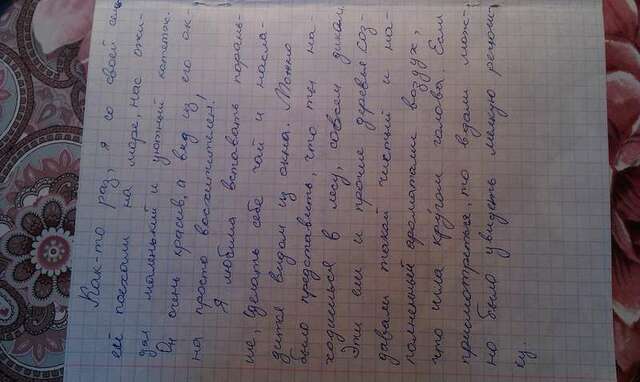 Как-то раз, я со своей семь
ёй поехали на море, нас ожи-
дал маленький и уютный коттедж.
Он очень красив, а вид из его ок-
на просто восхитителен!
Я любила вставать порань-
ше, сделать себе чай и насла-
дится видом из окна. Можно
было представить, что ты на-
ходишься в лесу, совсем диком.
Эти ели и прочие деревья соз-
давали такой чистый и на-
полненный ароматами воздух,
что шла кру́гом голова. Если
присмотреться, то вдали мож-
но было увидеть мелкую речуш-
ку.